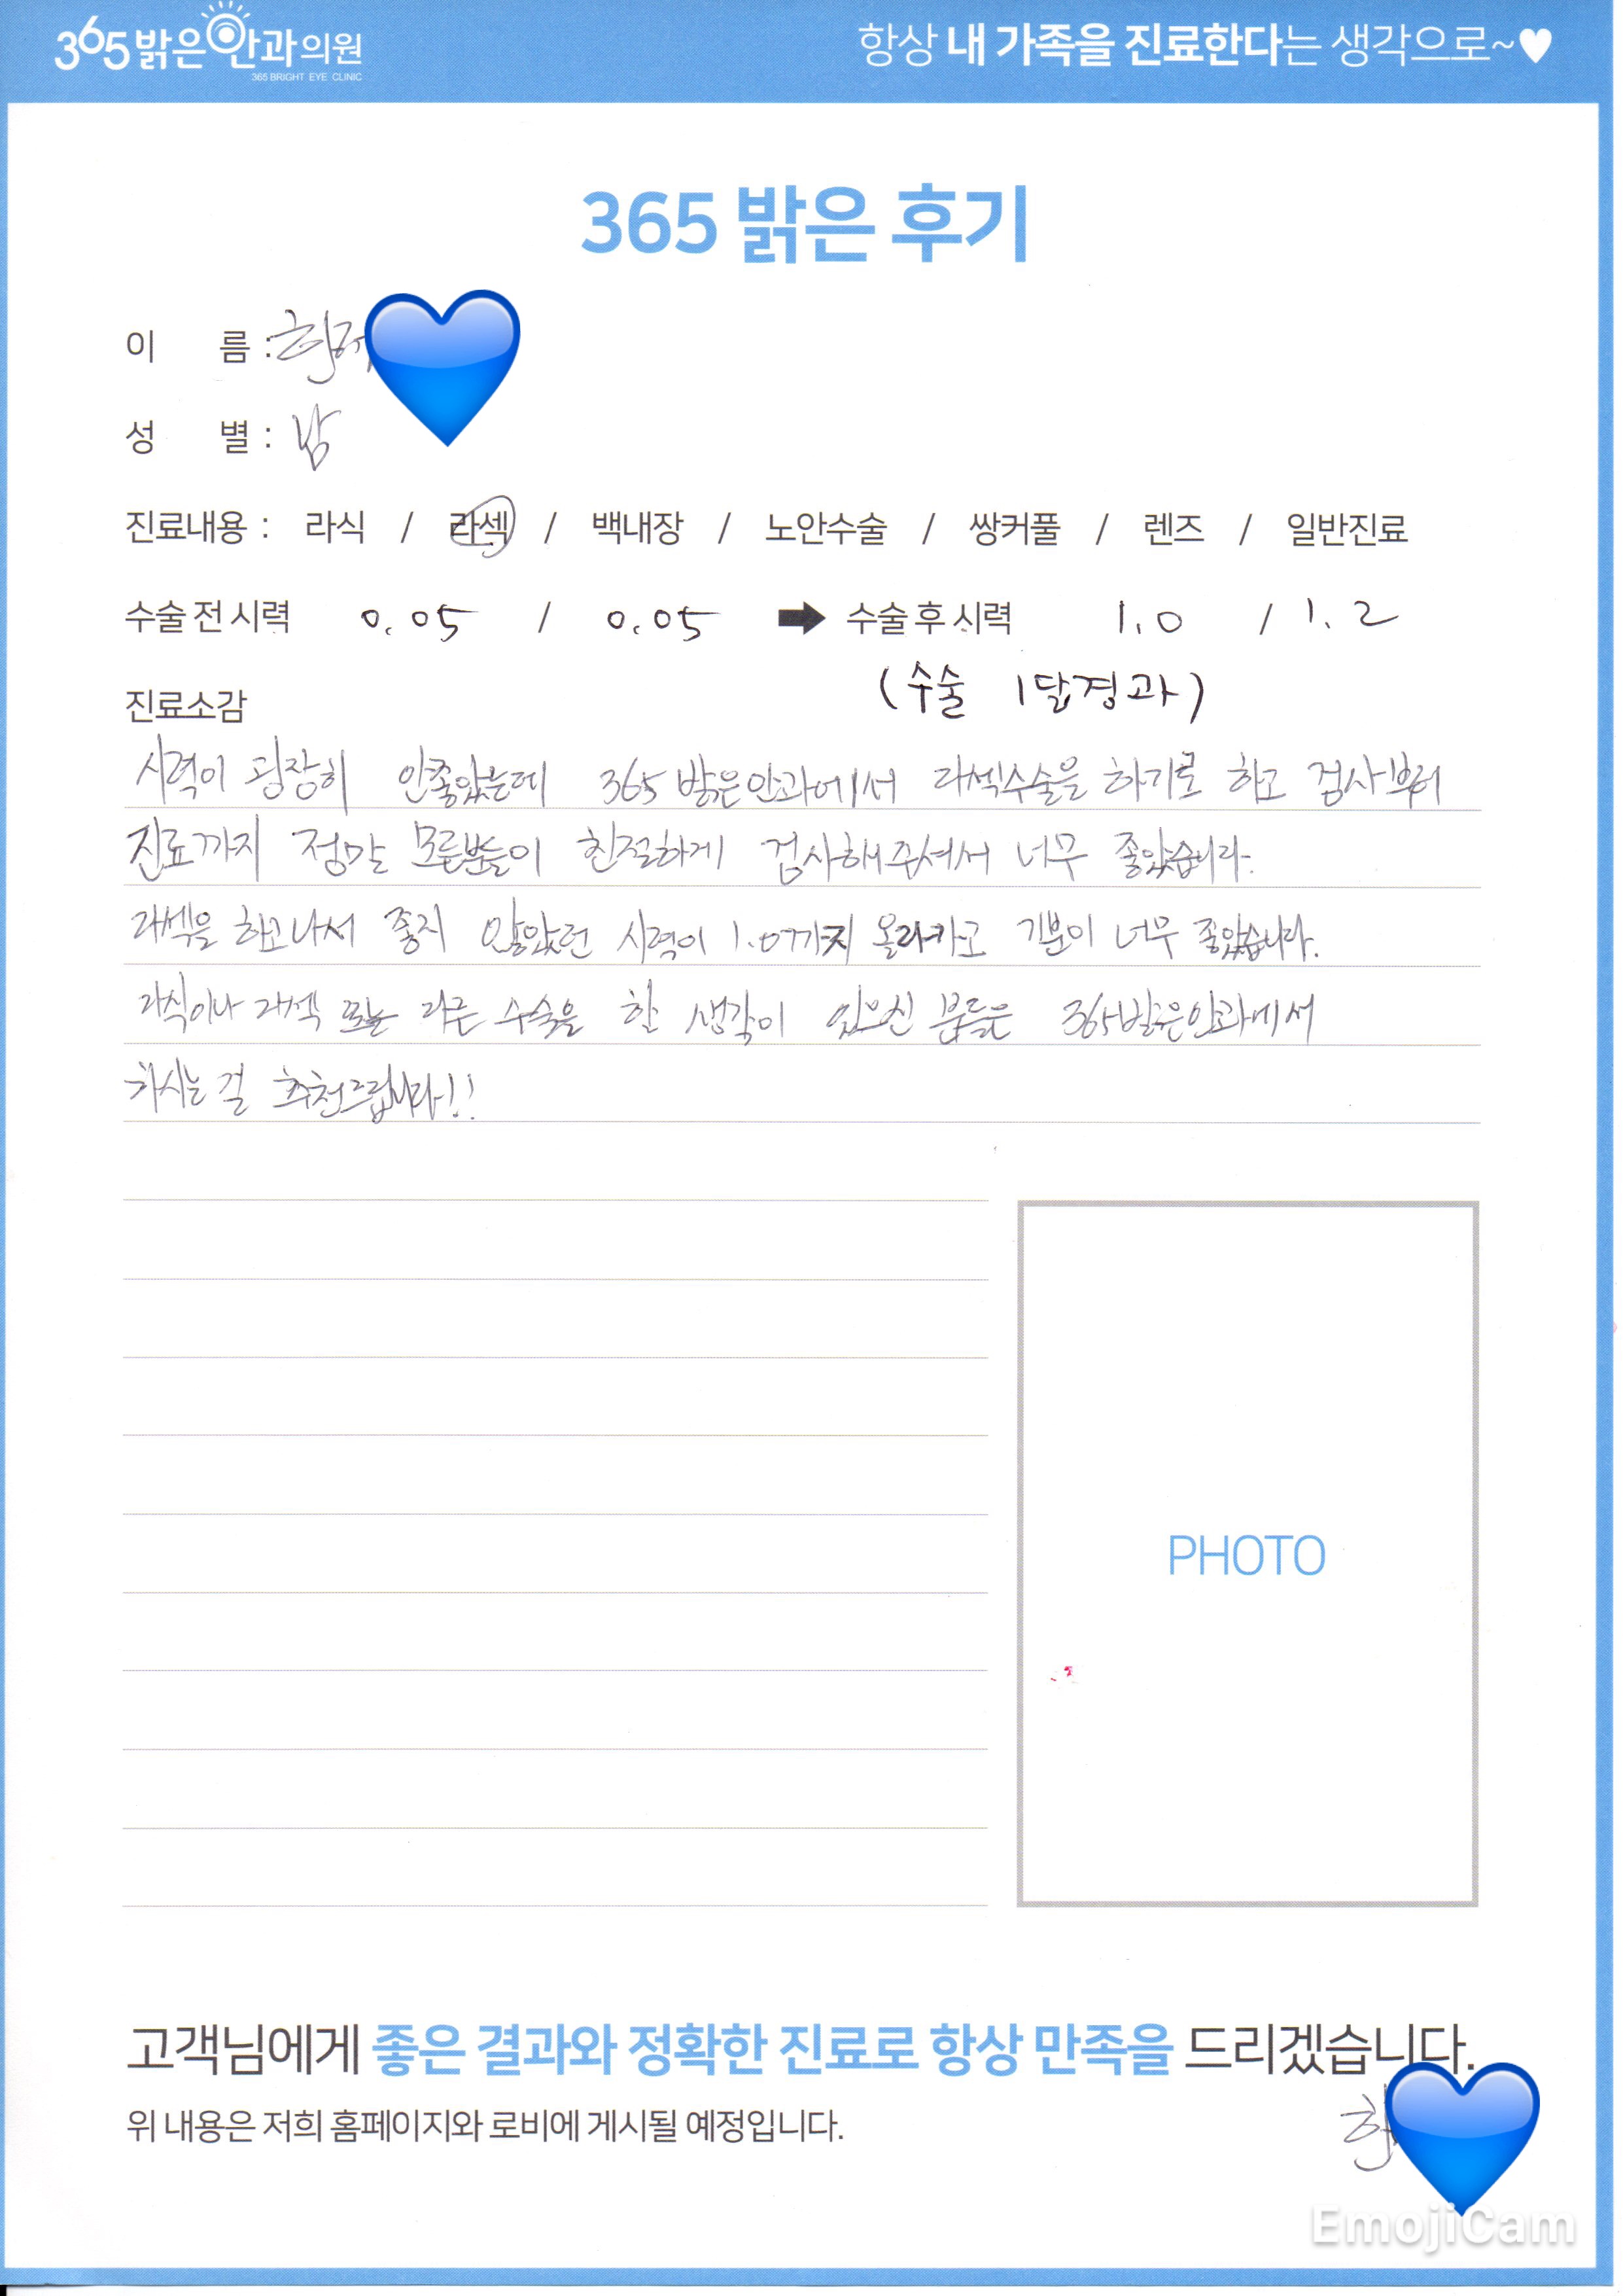 365밝은안과의원
365 BRIGHT EYE CLINIC
항상 내 가족을 진료한다는 생각으로~♥
365 밝은 후기
이 름 :
성 별 : 남
진료내용 : 라식 / 라섹 / 백내장 / 노안수술 / 쌍커풀 / 렌즈 / 일반진료
수술 전 시력 0.05 / 0.05 ➡ 수술 후 시력 1.0 / 1.2
(수술 1달경과)
진료소감
시력이 굉장히 안좋았는데 365밝은안과에서 라섹수술을 하기로 하고 검사부터
진료까지 정말 모든분들이 친절하게 검사해주셔서 너무 좋았습니다.
라섹을 하고나서 좋지 않았던 시력이 1.0까지 올라가고 기분이 너무 좋았습니다.
라식이나 라섹 또는 다른 수술을 할 생각이 있으신 분들은 365밝은안과에서
하시는 걸 추천드립니다!!
PHOTO
고객님에게 좋은 결과와 정확한 진료로 항상 만족을 드리겠습니다.
위 내용은 저희 홈페이지와 로비에 게시될 예정입니다.
EmojiCam